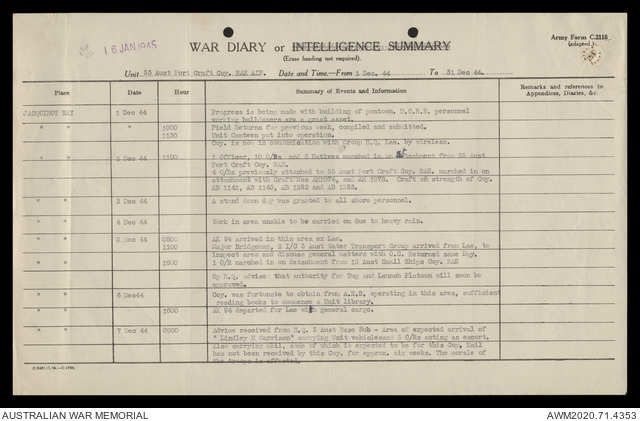 16 JAN 1945
WAR DIARY or INTELLIGENCE SUMMARY
Army Form C.2118
(adapted.)
(Erase heading not required).
Unit. 53 Aust Port Craft Coy. RAE AIF. Date and Time.—From 1 Dec. 44 To 31 Dec 44.
Place Date Hour Summary of Events and Information Remarks and references to Appendices, Diaries, &c.
JACQUINOT BAY 1 Dec 44 Progress is being made with building of pontoon. D.C.R.E. personnel
working bulldozers are a great asset.
" " " 1000 Field Returns for previous week, compiled and submitted.
1130 Unit Canteen put into operation.
Coy. is now in comunication with Group H.Q. Lae. by wireless.
" " 2 Dec 44 1100 1 Officer, 10 O/Rs. and 3 Natives marched in on attachment from 55 Aust
Port Craft Coy. RAE.
4 O/Rs previously attached to 55 Aust Port Craft Coy. RAE. marched in on
attachment with Craft Nos AM1074, and AM 1078. Craft on strength of Coy.
AB 1141, AB 1143, AB 1252 and AB 1253.
" " 3 Dec 44 A stand down day was granted to all shore personnel.
" " 4 Dec 44 Work in area unable to be carried on due to heavy rain.
" " 5 Dec 44 0800 AK 94 arrived in this area ex Lae.
1100 Major Bridgeman, 2 I/C 3 Aust Water Transport Group arrived from Lae, to
inspect area and discuss general matters with O.C. Returned same Day.
" " 1600 1 O/R marched in on detachment from 12 Aust Small Ships Coy. RAE
Gp H.Q. advise that authority for Tug and Launch Platoon will soon be
approved.
" " 6 Dec44 Coy. was fortunate to obtain from A.E.S. operating in this area, sufficient
reading books to commence a Unit library.
" " 1600 AK 94 departed for Lae with general cargo.
" " 7 Dec 44 0900 Advice received from H.Q. 5 Aust Base Sub - Area of expected arrival of
" Lindley M Garrison" carrying Unit vehicles and 3 O/Rs acting as escort.
Also carrying mail, some of which is expected to be for this Coy. Mail
has not been received by this Coy. for approx. six weeks. The morale of
the troops is affected.
AUSTRALIAN WAR MEMORIAL
AWM2020.71.4353